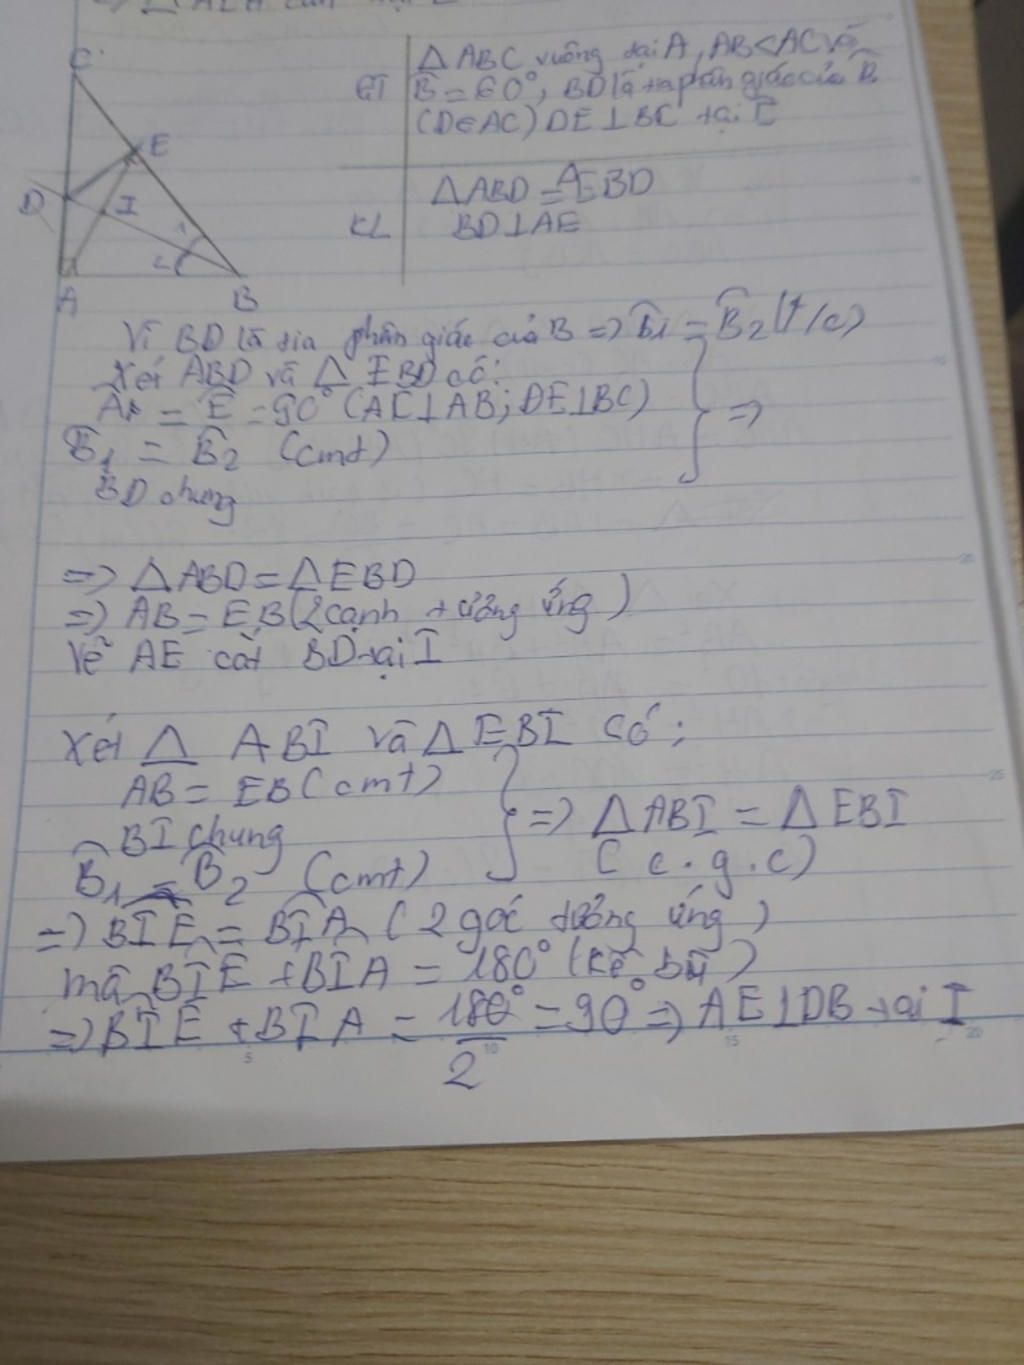 C
E
D
I
1
2
A
B
GT
△ABC vuông tại A, AB<AC và
B̂ = 60°, BD là tia phân giác của B̂
(D∈AC) DE⊥BC tại E
KL
△ABD = △EBD
BD⊥AE
Vì BD là tia phân giác của B => B̂1 = B̂2 (t/c)
Xét ABD và △ EBD có:
 = Ê = 90° (AC⊥AB; DE⊥BC)
B̂1 = B̂2 (cmt)
BD chung
} =>
=> △ABD = △EBD
=> AB = EB (2 cạnh tương ứng)
Vẽ AE cắt BD tại I
Xét △ ABI và △ EBI có;
AB = EB (cmt)
BI chung
B̂1 = B̂2 (cmt)
} => △ABI = △EBI
(c.g.c)
=> BIE = BIA (2 góc tương ứng)
mà BIE + BIA = 180° (kề bù)
=> BIE + BIA = 180°/2 = 90° => AE⊥DB tại I
5
10
15
20
20
25